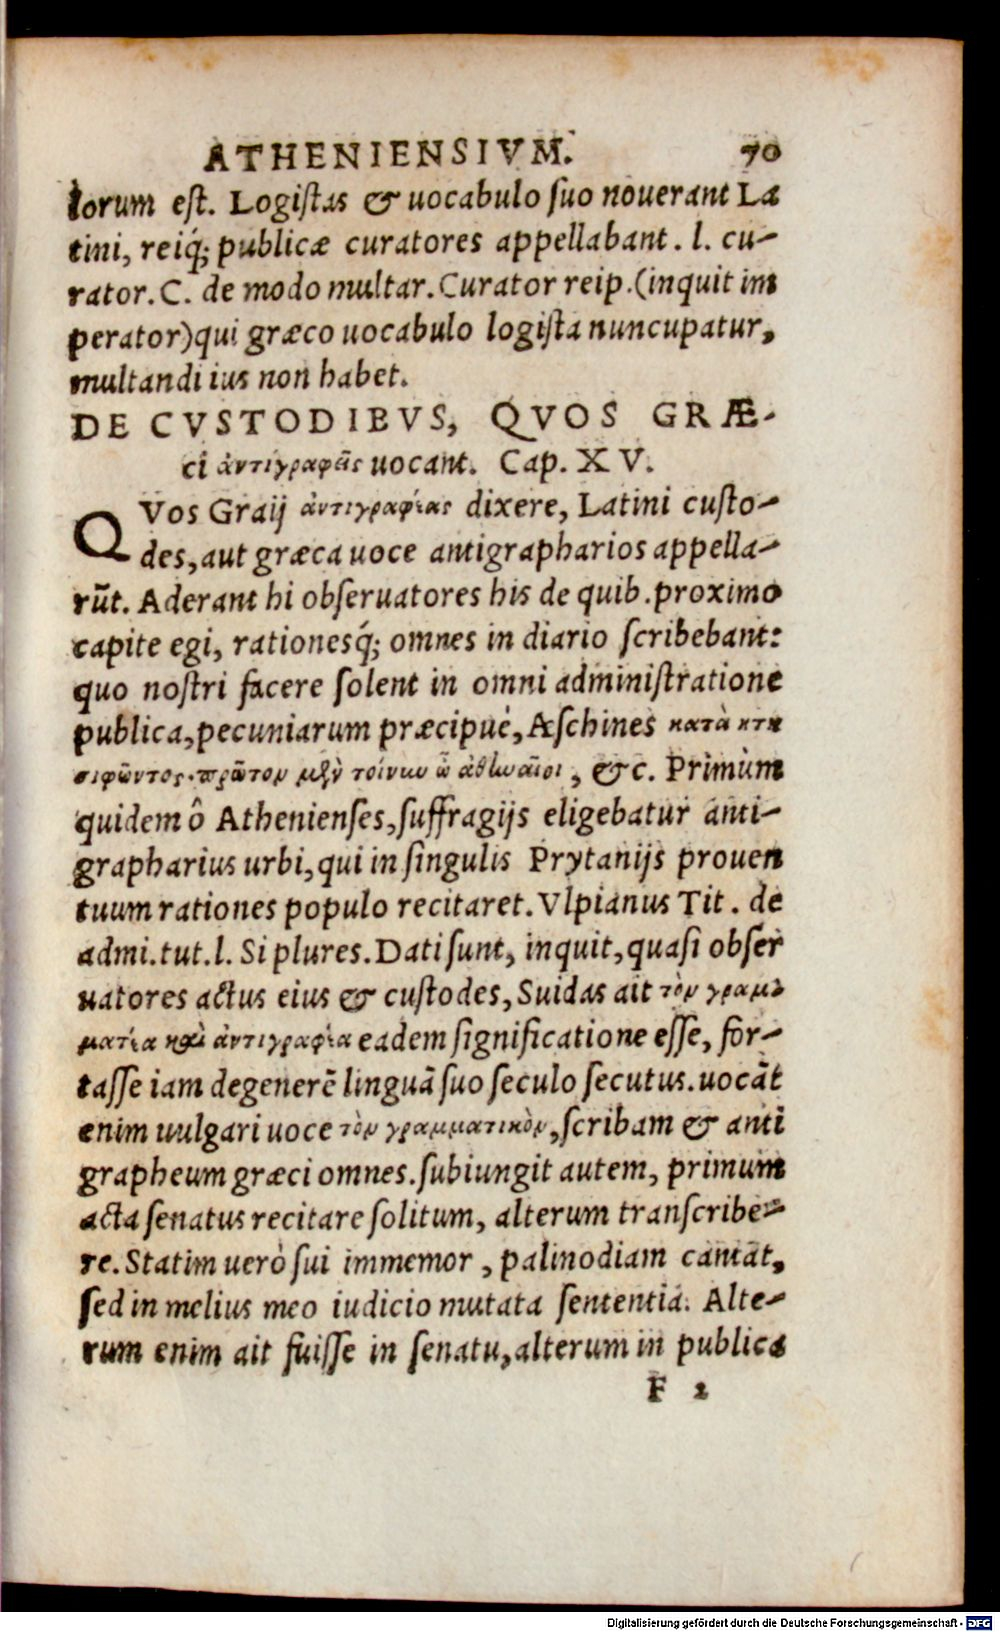 ATHENIENSIVM. 70
torum est. Logistas & uocabulo suo nouerant La
tini, reiq́; publicæ curatores appellabant. l. cu-
rator. C. de modo multar. Curator reip. (inquit im
perator) qui græco uocabulo logista nuncupatur,
multandi ius non habet.
DE CVSTODIBVS, QVOS GRÆ-
ci ἀντιγραφεῖς uocant. Cap. XV.
QVos Graij ἀντιγραφέας dixere, Latini custo-
des, aut græca uoce antigrapharios appella-
rūt. Aderant hi obseruatores his de quib. proximo
capite egi, rationesq́; omnes in diario scribebant:
quo nostri facere solent in omni administratione
publica, pecuniarum præcipuè, Aeschines κατὰ κτη
σιφῶντος. πρῶτον μὲν τοίνυν ὦ ἀθηναῖοι, &c. Primùm
quidem ô Athenienses, suffragijs eligebatur anti-
grapharius urbi, qui in singulis Prytanijs prouen
tuum rationes populo recitaret. Vlpianus Tit. de
admi. tut. l. Si plures. Dati sunt, inquit, quasi obser
uatores actus eius & custodes, Suidas ait τὸν γραμ-
ματέα καὶ ἀντιγραφέα eadem significatione esse, for-
tasse iam degenerē linguā suo seculo secutus. uocāt
enim uulgari uoce τὸν γραμματικὸν, scribam & anti
grapheum græci omnes. subiungit autem, primum
acta senatus recitare solitum, alterum transcribe-
re. Statim uerò sui immemor, palinodiam cantat,
sed in melius meo iudicio mutata sententia. Alte-
rum enim ait fuisse in senatu, alterum in publica
F 2
Digitalisierung gefördert durch die Deutsche Forschungsgemeinschaft - DFG